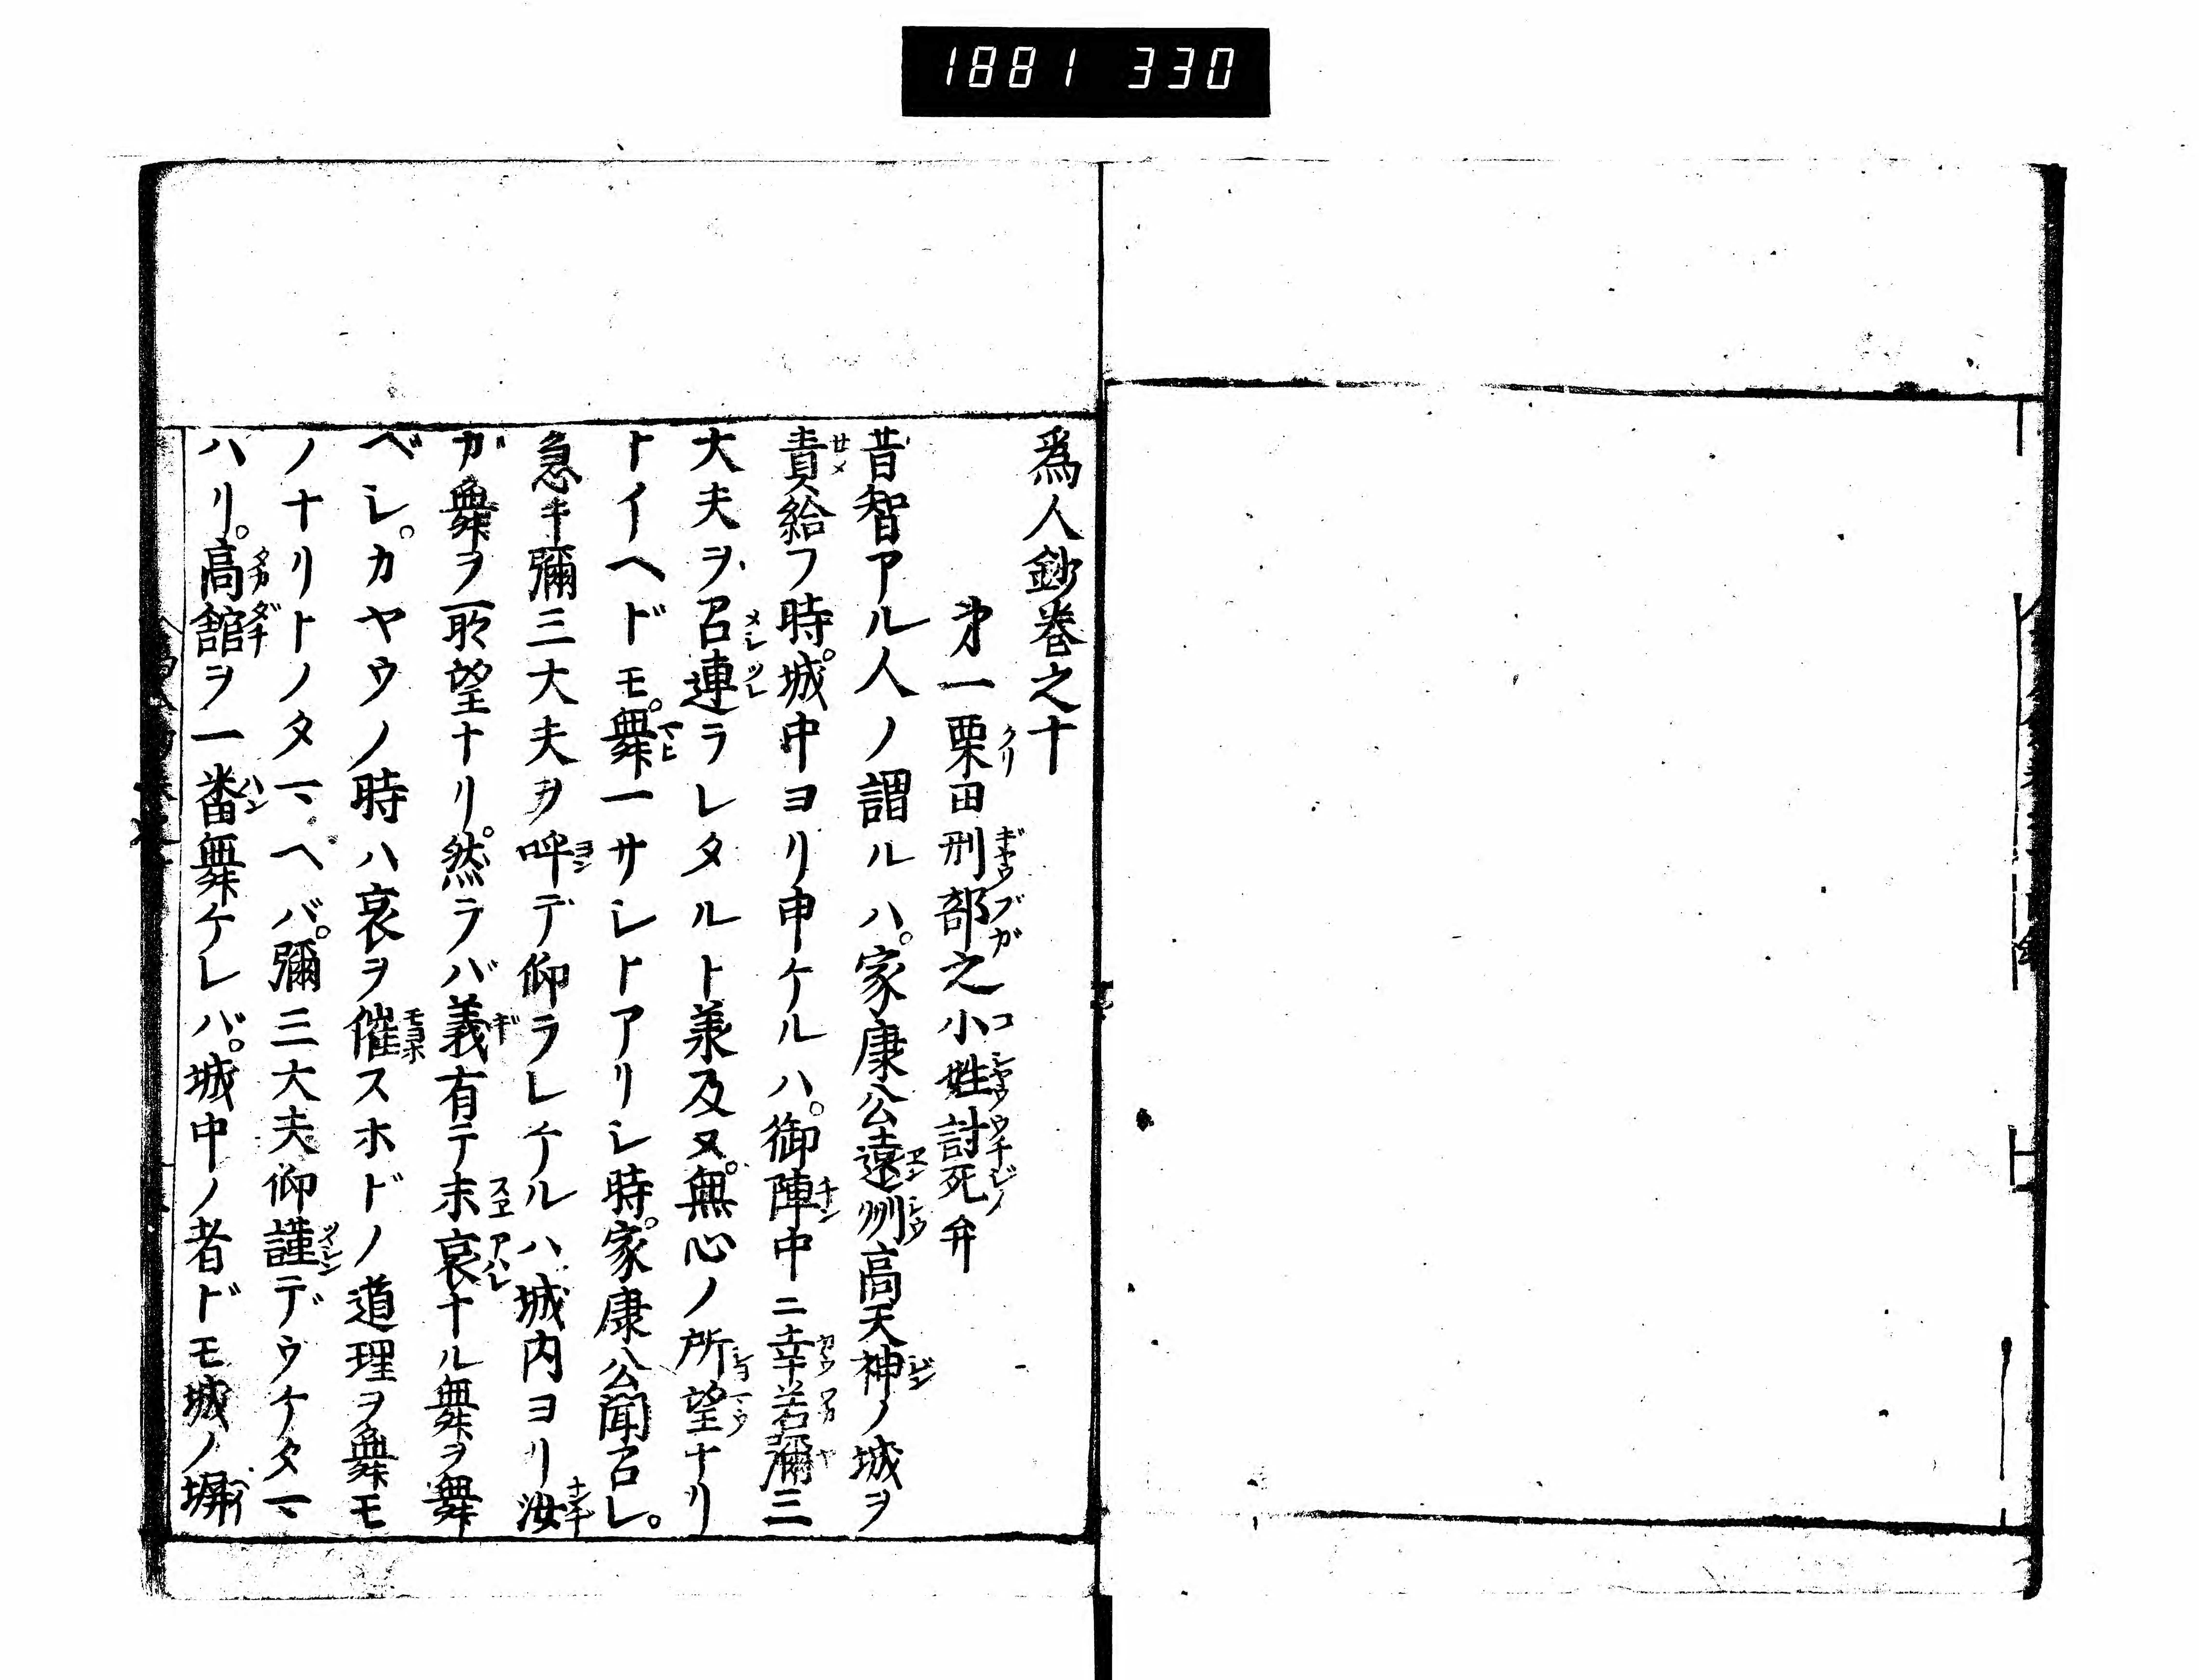 1881 330
爲人鈔巻之十
㐧一栗田刑部之小姓討死弁
昔智アル人ノ謂ルハ。家康公遠州高天神ノ城ヲ
責給フ時。城中ヨリ申ケルハ。御陣中ニ幸若彌三
大夫ヲ召連ラレタルト兼及ヌ。無心ノ所望ナリ
トイヘドモ。舞一サシトアリシ時。家康公聞召レ。
急キ彌三大夫ヲ呼デ仰ラレケルハ城内ヨリ汝
ガ舞ヲ所望ナリ。然ラバ義有テ末哀ナル舞ヲ舞
ベシ。カヤウノ時ハ哀ヲ催スホドノ道理ヲ舞モ
ノナリトノタマヘバ。彌三大夫仰謹デウケタマ
ハリ。高舘ヲ一番舞ケレバ。城中ノ者ドモ城ノ塀